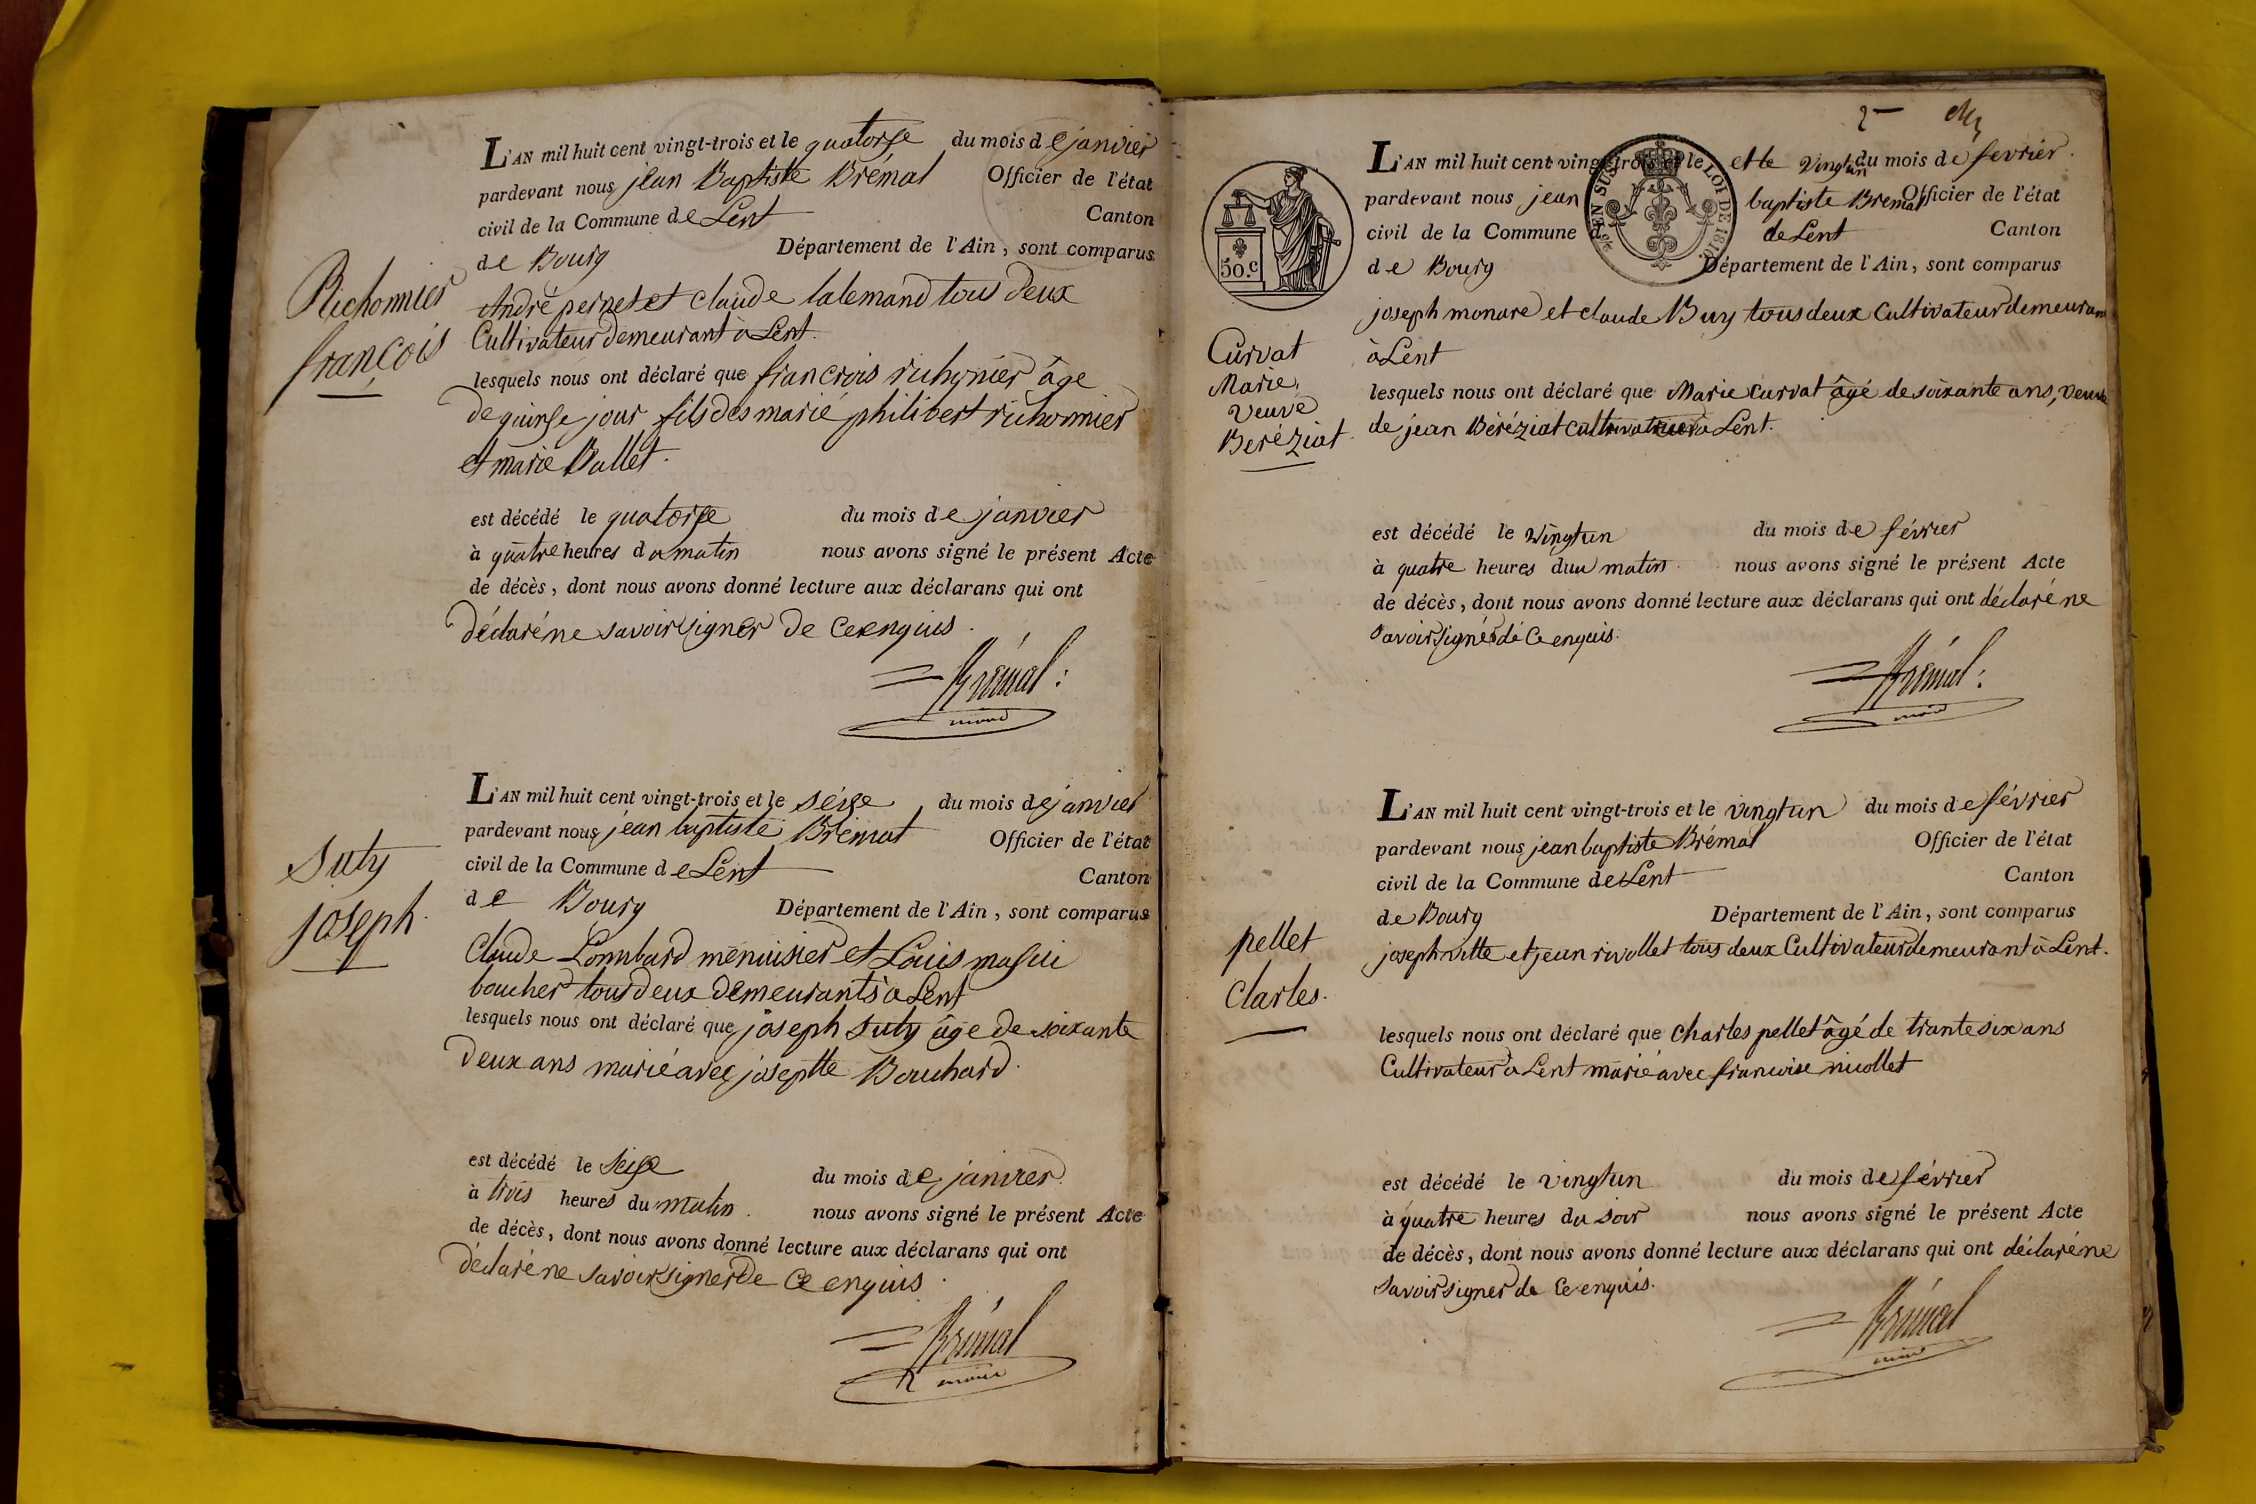 L'AN mil huit cent vingt-trois et le quatorse du mois de janvier
pardevant nous jean Baptiste Brémal Officier de l'état
civil de la Commune de Lent Canton
de Bourg Département de l'Ain, sont comparus
Richonnier
françois
André pernet et claude lalemand tous deux
Cultivateur demeurant à Lent.
lesquels nous ont déclaré que
de quinse jour fils des marié philibert richonnier
et marie Ballet.
est décédé le quatorse du mois de janvier
à quatre heures du matin nous avons signé le présent Acte
de décès, dont nous avons donné lecture aux déclarans qui ont
déclaré ne savoir signer de ce enquis.
Brémal
L'AN mil huit cent vingt-trois et le séise du mois de janvier
pardevant nous jean baptiste Brémal Officier de l'état
civil de la Commune de Lent Canton
de Bourg Département de l'Ain, sont comparus
Suty
joseph.
Claude Lombard menuisier et Louis
boucher tous deux demeurants à Lent
lesquels nous ont déclaré que joseph Suty âge de soixante
deux ans marié avec joseptte Bouchard.
est décédé le seise du mois de janvier
à trois heures du matin. nous avons signé le présent Acte
de décès, dont nous avons donné lecture aux déclarans qui ont
déclaré ne savoir signer de ce enquis.
Brémal
2
L'AN mil huit cent vingt-trois et le et le vingtun du mois de fevrier.
pardevant nous jean baptiste Bremal Officier de l'état
civil de la Commune de Lent Canton
de Bourg Département de l'Ain, sont comparus
50.c
LOI DE 1816
joseph monare et claude Buy tous deux Cultivateur demeurant
à Lent
Curvat
Marie,
Veuve
Beréziat.
lesquels nous ont déclaré que Marie Curvat âgé de soixante ans, veuve
de jean Béréziat à Lent.
est décédé le vingtun du mois de février
à quatre heures du matin. nous avons signé le présent Acte
de décès, dont nous avons donné lecture aux déclarans qui ont déclaré ne
savoir signer dé ce enquis.
Brémal
L'AN mil huit cent vingt-trois et le vingtun du mois de février
pardevant nous jean baptiste Brémal Officier de l'état
civil de la Commune de Lent Canton
de Bourg Département de l'Ain, sont comparus
pellet
Clarles.
joseph vitte et jean rivollet tous deux Cultivateur demeurant à Lent.
lesquels nous ont déclaré que Charles pellet âgé de trante six ans
Cultivateur à Lent marié avec francoise nicollet
est décédé le vingtun du mois de février
à quatre heures du soir nous avons signé le présent Acte
de décès, dont nous avons donné lecture aux déclarans qui ont déclaré ne
savoir signer de ce enquis.
Brémal